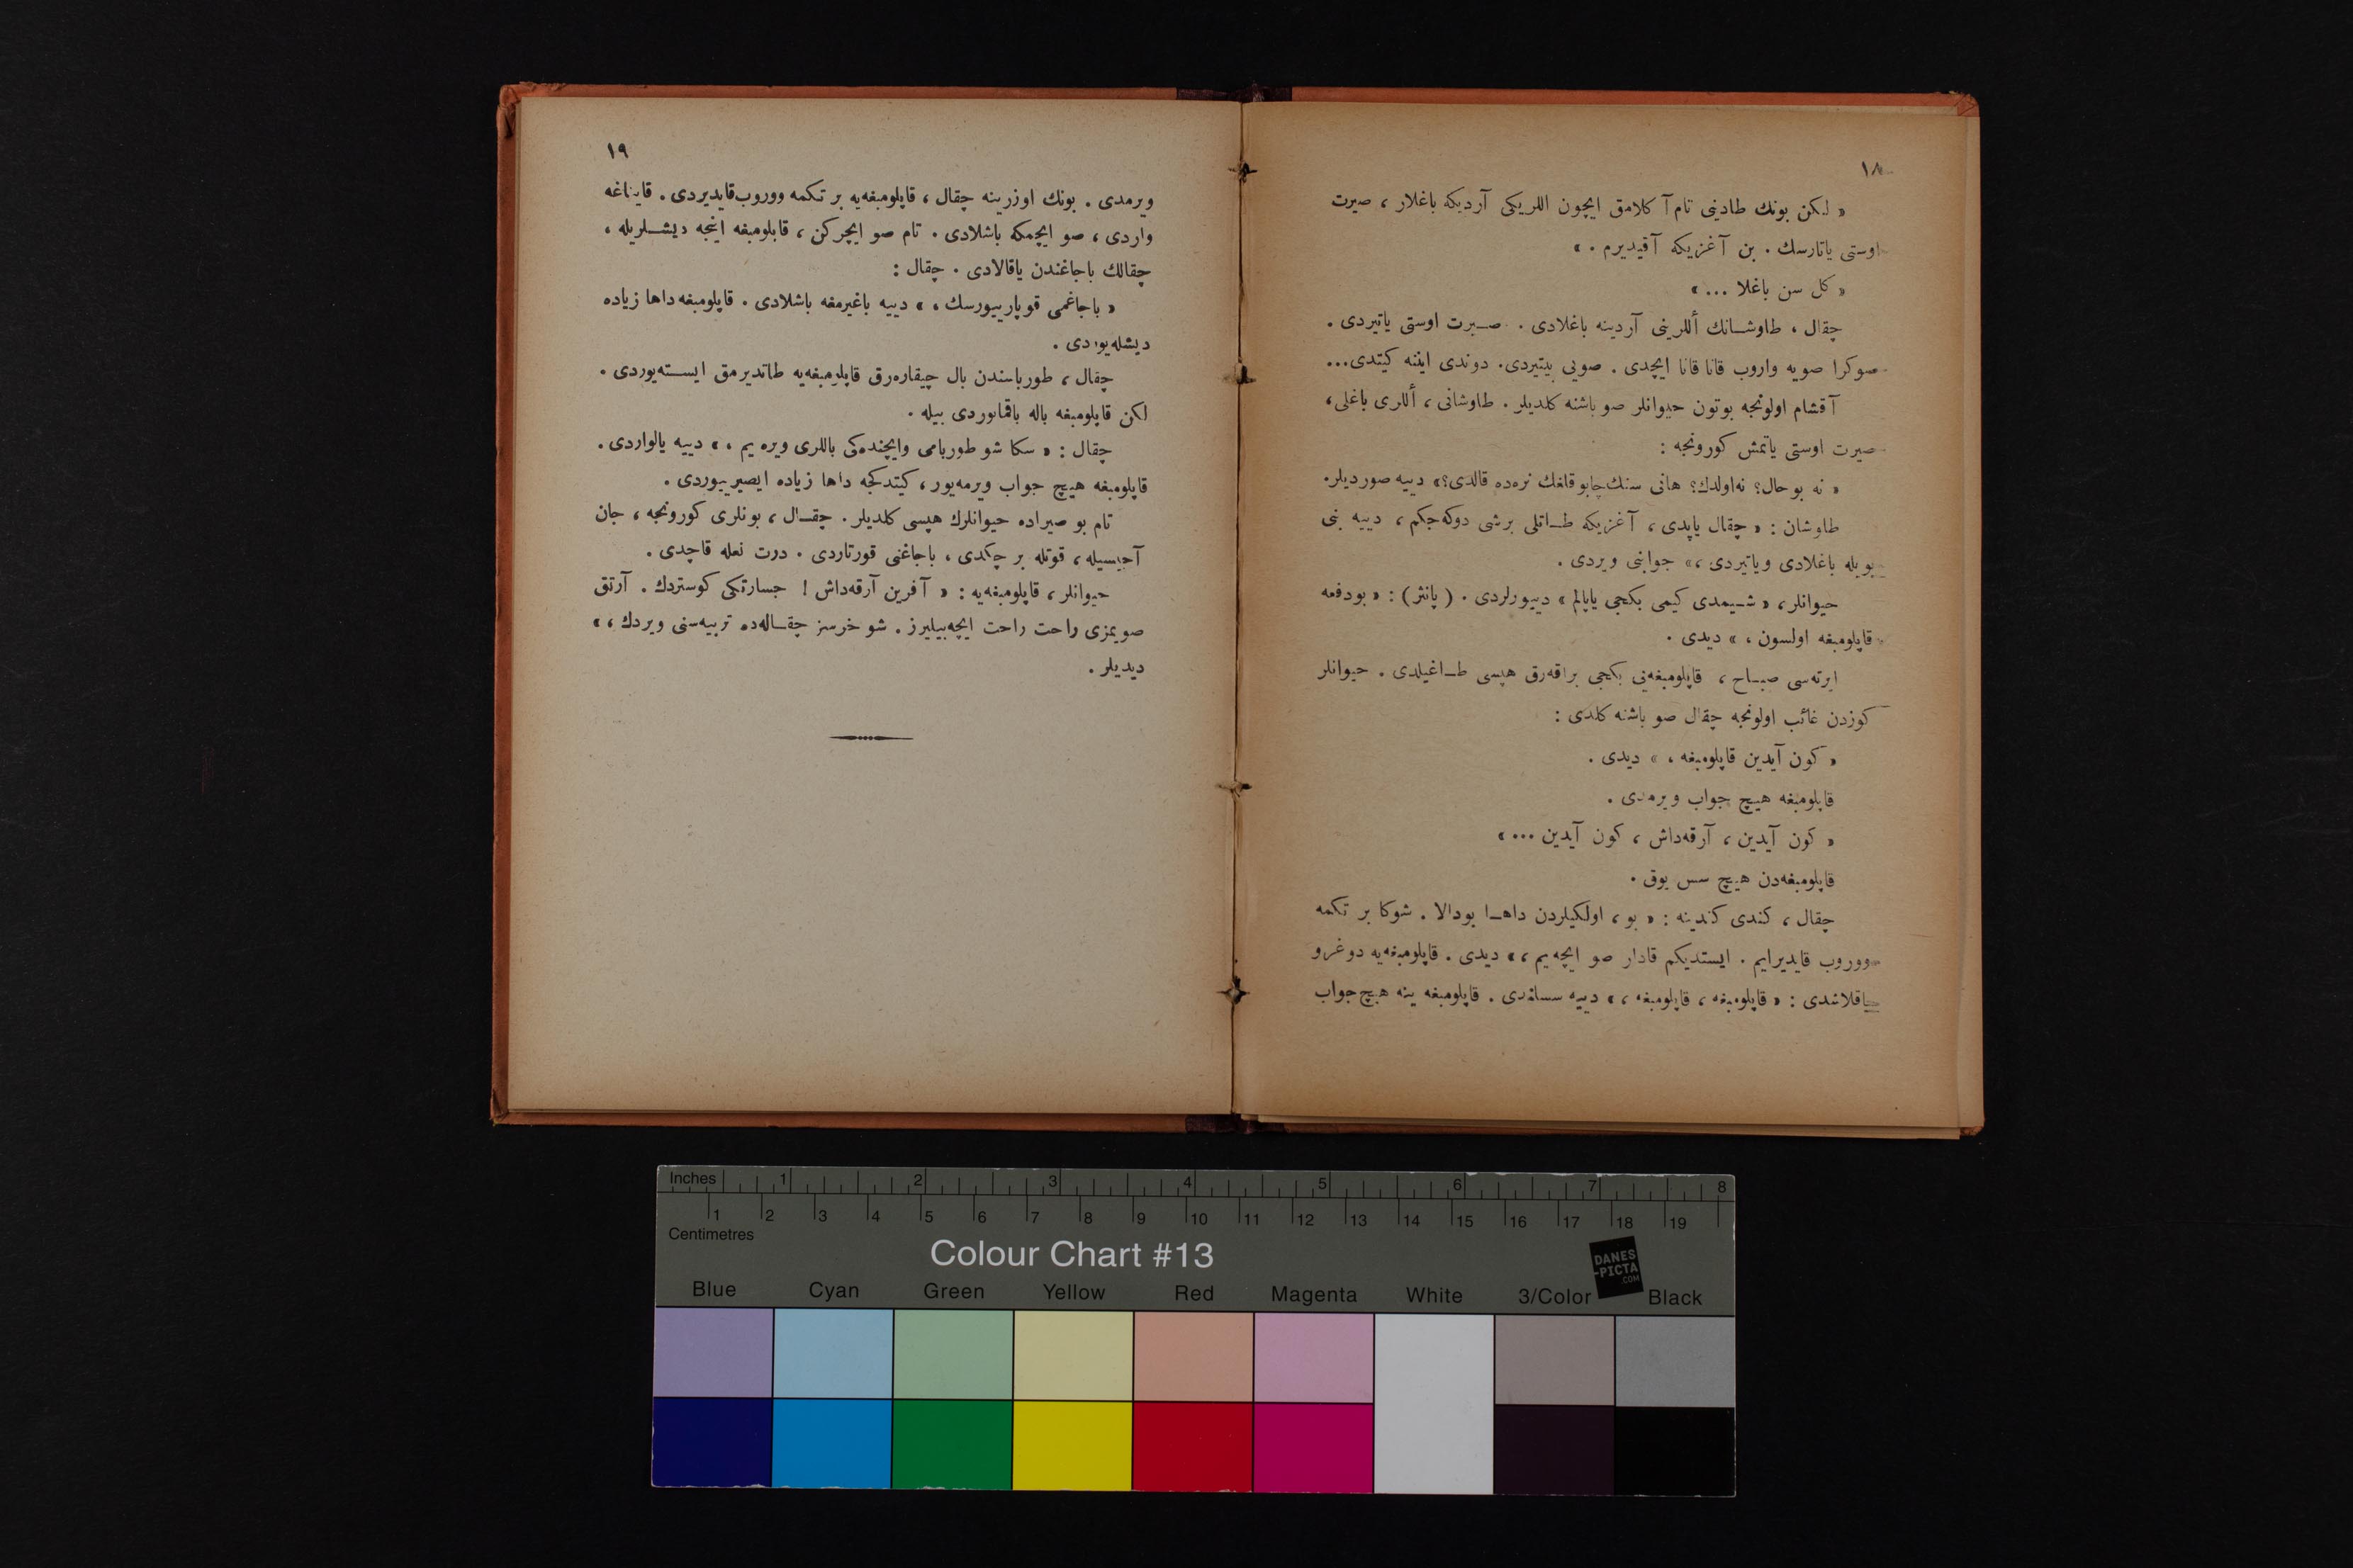 ١٨
« لكن بونك طادينى تام آ كلامق ايچون اللريكى آرديكه باغلار ، صيرت
اوستى ياتارسك . بن آغزيكه آقيديرم . »
« كل سن باغلا ... »
چقال ، طاوشـانك أللرينى آردينه باغلادى . صـيرت اوستى ياتيردى .
صوكرا صويه واروب قانا قانا ايچدى . صويى بيتيردى. دوندى ايننه كيتدى...
آقشام اولونجه بوتون حيوانلر صو باشنه كلديلر . طاوشانى ، أللرى باغلى ،
صيرت اوستى ياتمش كورونجه :
« نه بو حال؟ نه‌اولدك؟ هانى سنك‌چابوقلغك نره‌ده قالدى؟» دييه صورديلر.
طاوشان : « چقال ياپدى ، آغزيكه طـاتلى برشى دوكه‌جكم ، دييه بنى
بويله باغلادى وياتيردى ،» جوابنى ويردى .
حيوانلر ، « شـيمدى كيمى بكجى ياپالم » دييورلردى . ( پانثر) : « بودفعه
قاپلومبغه اولسون ، » ديدى .
ايرته‌سى صبـاح ، قاپلومبغه‌يى بكجى براقه‌رق هپسى طـاغيلدى . حيوانلر
كوزدن غائب اولونجه چقال صو باشنه كلدى :
« كون آيدين قاپلومبغه ، » ديدى .
قاپلومبغه هيچ جواب ويرمدى .
« كون آيدين ، آرقه‌داش ، كون آيدين ... »
قاپلومبغه‌دن هيچ سس يوق .
چقال ، كندى كندينه : « بو ، اولكيلردن داهـا بودالا . شوكا بر تكمه
ووروب قايديرايم . ايستديكم قادار صو ايچه‌يم ، » ديدى . قاپلومبغه‌يه دوغرو
ياقلاشدى : « قاپلومبغه ، قاپلومبغه ، » دييه سسلندى . قاپلومبغه ينه هيچ جواب
١٩
ويرمدى . بونك اوزرينه چقال ، قاپلومبغه‌يه بر تكمه ووروب‌قايديردى . قايناغه
واردى ، صو ايچمكه باشلادى . تام صو ايچركن ، قاپلومبغه اينجه ديشـلريله ،
چقالك باجاغندن ياقالادى . چقال :
« باجاغمى قوپارييورسك ، » دييه باغيرمغه باشلادى . قاپلومبغه داها زياده
ديشله‌يوردى .
چقال ، طورباسندن بال چيقاره‌رق قاپلومبغه‌يه طاتديرمق ايسـته‌يوردى .
لكن قاپلومبغه باله باقمايوردى بيله .
چقال : « سكا شو طوربامى وايچنده‌كى باللرى ويره يم ، » دييه يالواردى .
قاپلومبغه هيچ جواب ويرمه‌يور ، كيتدكجه داها زياده ايصيرييوردى .
تام بو صيراده حيوانلرك هپسى كلديلر . چقـال ، بونلرى كورونجه ، جان
آجيسيله ، قوتله بر چكدى ، باجاغنى قورتاردى . درت نعله قاچدى .
حيوانلر ، قاپلومبغه‌يه : « آفرين آرقه‌داش ! جسارتكى كوستردك . آرتق
صويمزى راحت راحت ايچه‌بيليرز . شو خرسز چقـاله‌ده تربيه‌سنى ويردك ، »
ديديلر .
Inches 1 2 3 4 5 6 7 8
1 2 3 4 5 6 7 8 9 10 11 12 13 14 15 16 17 18 19
Centimetres
Colour Chart #13
DANES
-PICTA
.COM
Blue Cyan Green Yellow Red Magenta White 3/Color Black